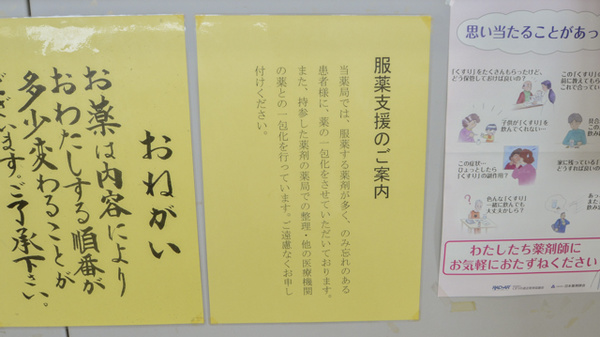 おねがい
お薬は内容により
おわたしする順番が
多少変わることが
ございます。ご了承下さい。
服薬支援のご案内
当薬局では、服薬する薬剤が多く、のみ忘れのある
患者様に、薬の一包化をさせていただいております。
また、持参した薬剤の薬局での整理・他の医療機関
の薬との一包化を行っています。ご遠慮なくお申し
付けください。
思い当たることがあっ
「くすり」をたくさんもらったけど、
どう保管しておけば良いの?
この「くすり」の
前に教えてもら
これで合ってい
子供が「くすり」を
飲んでくれない…
この症状…
ひょっとしたら
「くすり」の副作用?
家に残っている「
どうすれば良い
色んな「くすり」
一緒に飲んでも
大丈夫かしら?
わたしたち薬剤師に
お気軽におたずねください